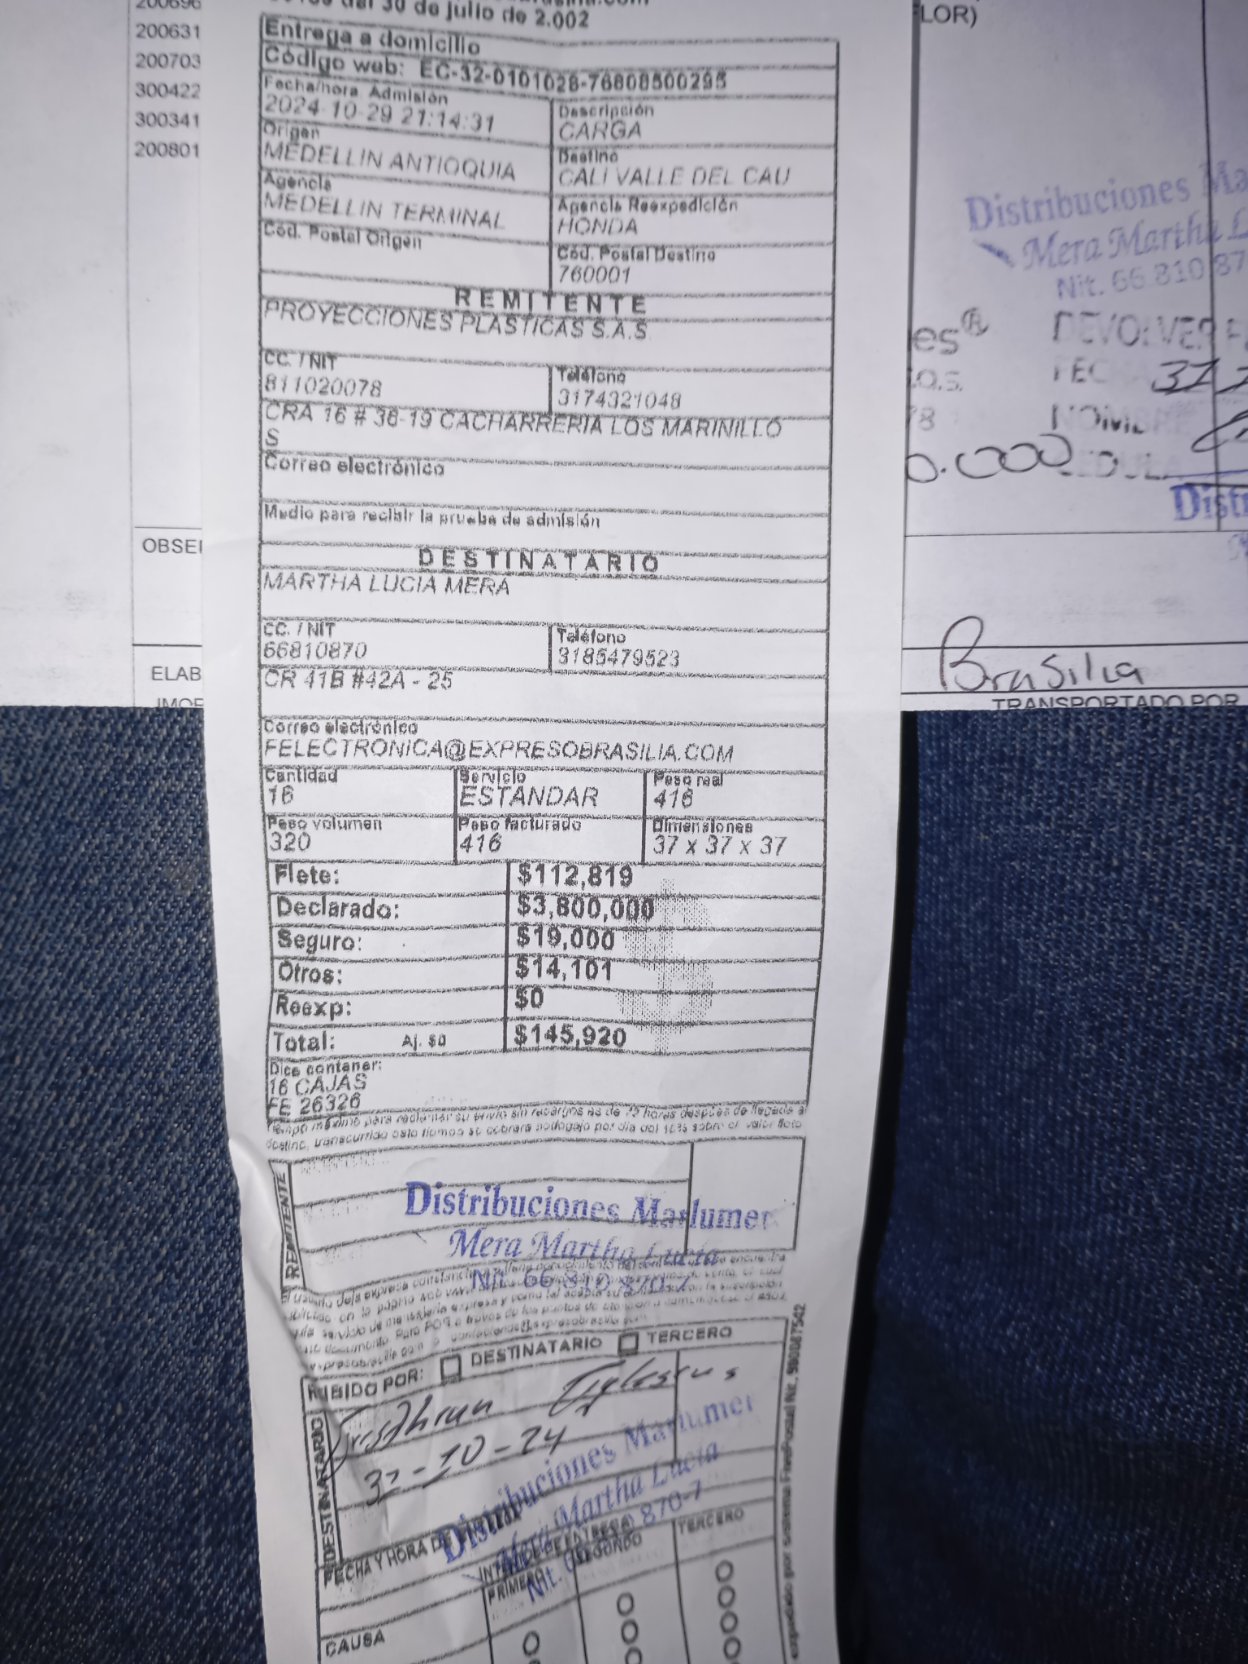 del 30 de julio de 2.002
Entrega a domicilio
Código web: EC-32-0101028-76808500295
Fecha/hora Admisión
2024-10-29 21:14:31
Descripción
CARGA
Origen
MEDELLIN ANTIOQUIA
Destino
CALI VALLE DEL CAU
Agencia
MEDELLIN TERMINAL
Agencia Reexpedición
HONDA
Cód. Postal Origen
Cód. Postal Destino
760001
REMITENTE
PROYECCIONES PLASTICAS S.A.S
CC. / NIT
811020078
Teléfono
3174321048
CRA 16 # 36-19 CACHARRERIA LOS MARINILLO
S
Correo electrónico
Medio para recibir la prueba de admisión
DESTINATARIO
MARTHA LUCIA MERA
CC. / NIT
66810870
Teléfono
3185479523
CR 41B #42A - 25
Correo electrónico
FELECTRONICA@EXPRESOBRASILIA.COM
Cantidad
16
Servicio
ESTANDAR
Peso real
416
Peso volumen
320
Peso facturado
416
Dimensiones
37 x 37 x 37
Flete: $112,819
Declarado: $3,800,000
Seguro: $19,000
Otros: $14,101
Reexp: $0
Total: Aj. $0 $145,920
Dice contener:
16 CAJAS
FE 26326
Tiempo máximo para reclamar su envío sin recargos es de 72 horas después de llegada a
destino, transcurrido este tiempo se cobrará bodegaje por día del
REMITENTE
Distribuciones Marlumer
Mera Martha Lucia
Nit. 66 810 870-7
RECIBIDO POR: DESTINATARIO TERCERO
DESTINATARIO
31-10-24
Distribuciones Marlumer
Mera Martha Lucia
Nit. 870-7
FECHA Y HORA DE
INTENTO DE ENTREGA
PRIMERO SEGUNDO TERCERO
CAUSA
200631
200703
300422
300341
200801
OBSE
ELAB
LOR)
Distribuciones Ma
Mera Martha L
Nit. 66 810 87
es®
DEVOLVER
FEC 31
NOMBRE
0.000
CEDULA
Dist
Brasilia
TRANSPORTADO POR